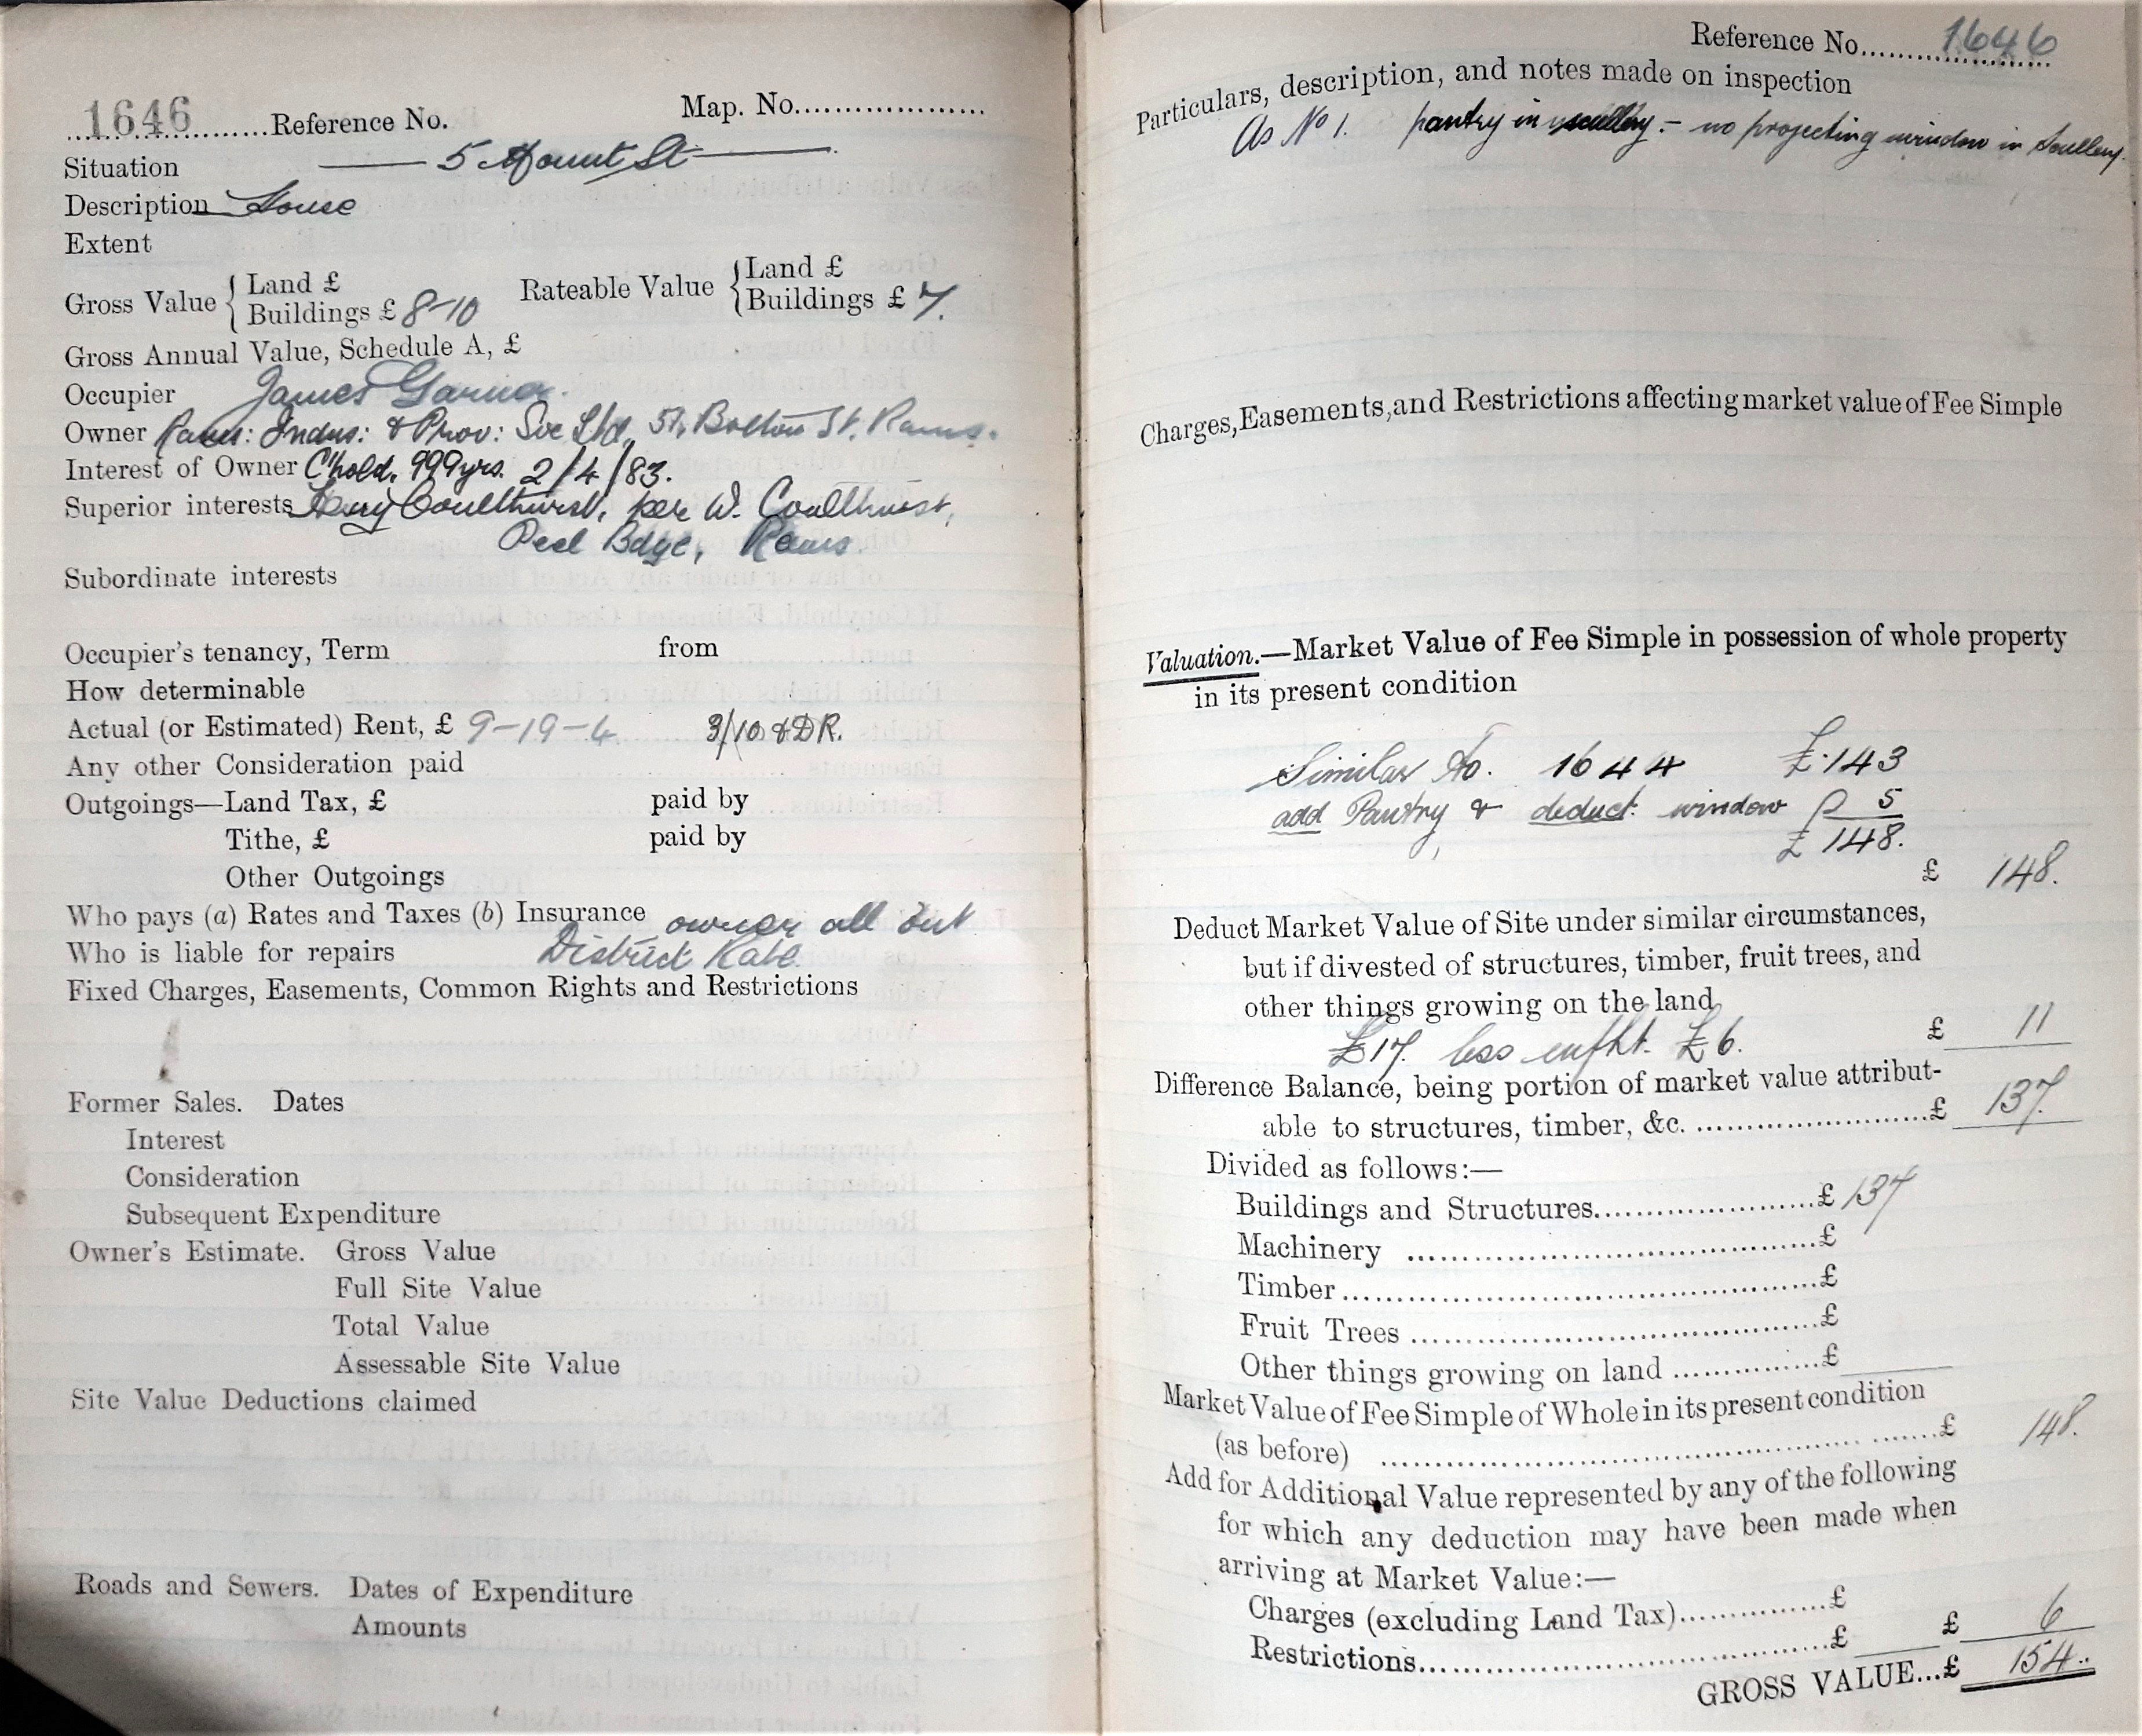 1646 Reference No. Map. No.
Situation 5 Mount St
Description House
Extent
Gross Value { Land £ Rateable Value { Land £
Buildings £ 8-10 Buildings £ 7.
Gross Annual Value, Schedule A, £
Occupier James
Owner Rams: Indus: & Prov: Soc Ltd, 51, Bolton St. Rams.
Interest of Owner C'hold. 999 yrs. 2/4/83.
Superior interests Henry Coulthurst, per W. Coulthurst,
Peel Bdge, Rams.
Subordinate interests
Occupier's tenancy, Term from
How determinable
Actual (or Estimated) Rent, £ 9-19-4 3/10 & DR.
Any other Consideration paid
Outgoings—Land Tax, £ paid by
Tithe, £ paid by
Other Outgoings
Who pays (a) Rates and Taxes (b) Insurance owner all but
Who is liable for repairs District Rate.
Fixed Charges, Easements, Common Rights and Restrictions
Former Sales. Dates
Interest
Consideration
Subsequent Expenditure
Owner's Estimate. Gross Value
Full Site Value
Total Value
Assessable Site Value
Site Value Deductions claimed
Roads and Sewers. Dates of Expenditure
Amounts
Reference No. 1646
Particulars, description, and notes made on inspection
As No 1. pantry in scullery. – no projecting window in Scullery.
Charges, Easements, and Restrictions affecting market value of Fee Simple
Valuation.—Market Value of Fee Simple in possession of whole property
in its present condition
Similar to. 1644 £143
add Pantry & deduct window 5
£148.
£ 148.
Deduct Market Value of Site under similar circumstances,
but if divested of structures, timber, fruit trees, and
other things growing on the land
£17. less enfht. £6. £ 11
Difference Balance, being portion of market value attribut-
able to structures, timber, &c. £ 137.
Divided as follows:—
Buildings and Structures £ 137
Machinery £
Timber £
Fruit Trees £
Other things growing on land £
Market Value of Fee Simple of Whole in its present condition
(as before) £ 148.
Add for Additional Value represented by any of the following
for which any deduction may have been made when
arriving at Market Value:—
Charges (excluding Land Tax) £
Restrictions £ £ 6
GROSS VALUE...£ 154.